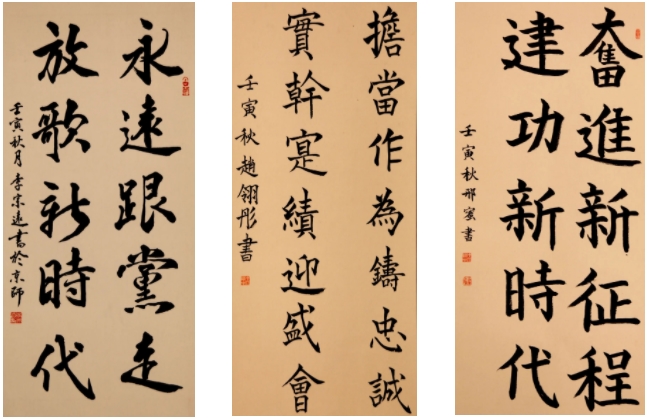 永遠跟黨走
放歌新時代
壬寅秋月李宗遠書於京師
擔當作為鑄忠誠
實幹寔績迎盛會
壬寅秋趙翎彤書
奮進新征程
建功新時代
壬寅秋邢蜜書